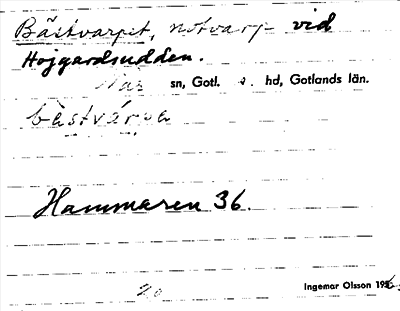 Bästvarpet, notvarp vid
Hojgardsudden.
När sn, Gotl. s. hd, Gotlands län.
bästvárpa
Hammaren 36.
20
Ingemar Olsson 195